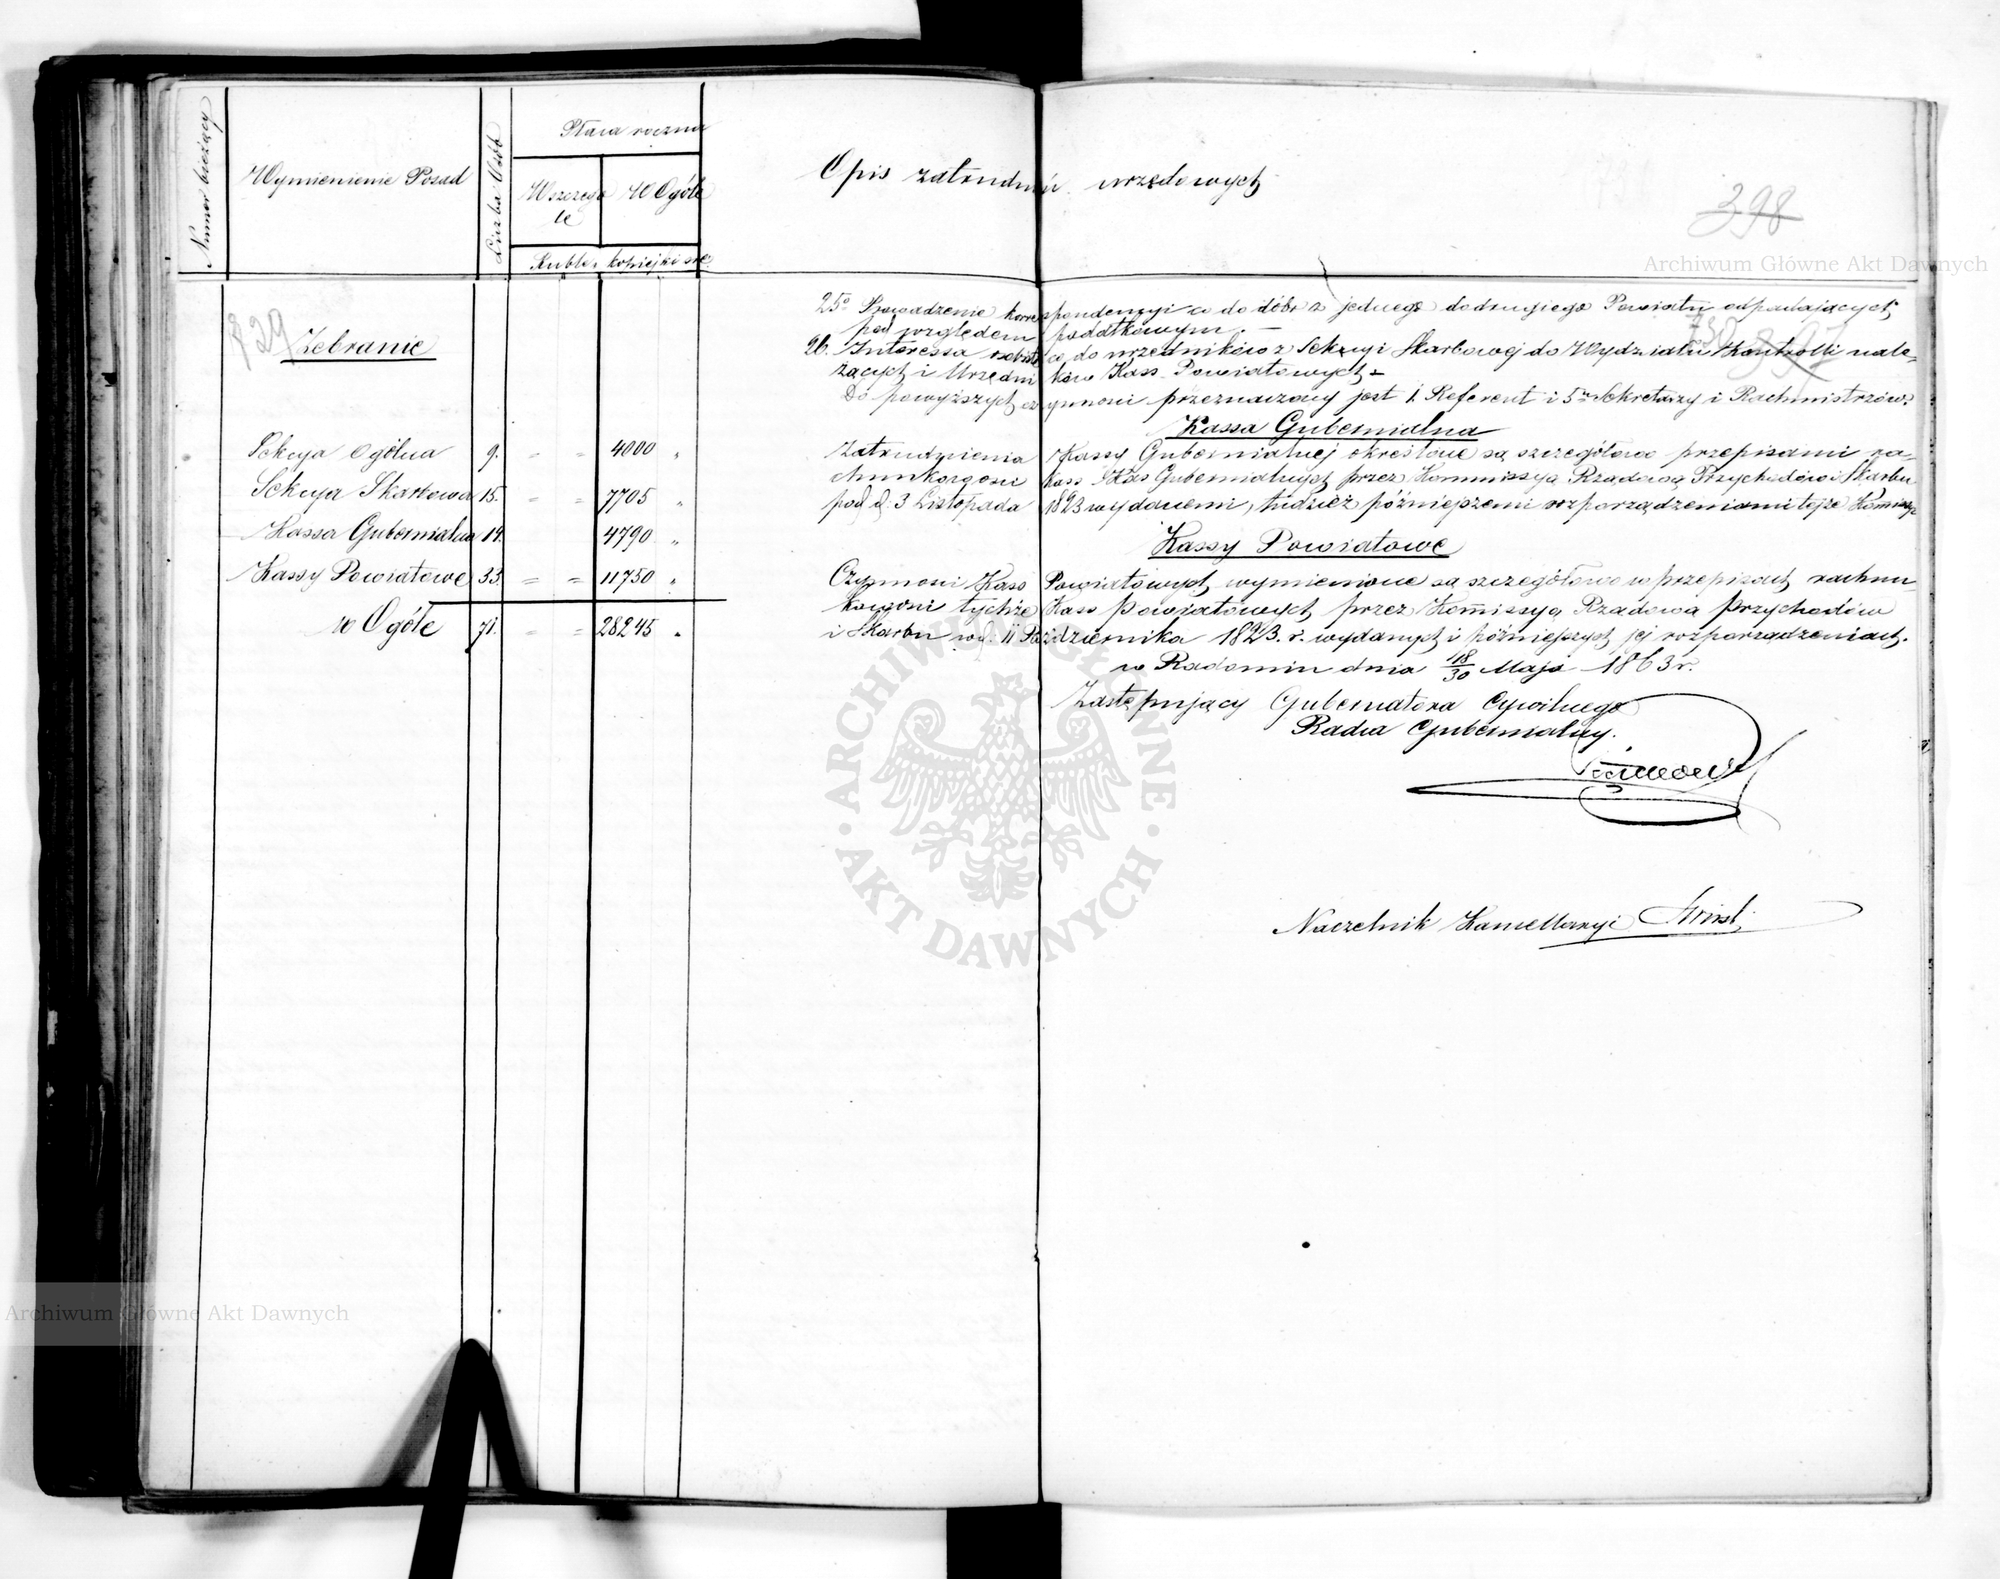 Numer bieżący
Wymienienie Posad
Liczba Osób
Płaca roczna
W szczegó
le
W Ogóle
Ruble i kopiejki sr.
Opis zatrudnień urzędowych
398
Archiwum Główne Akt Dawnych
829
Zebranie
25o Prowadzenie korrespondencyi co do dóbr z jednego do drugiego Powiatu odpadających
pod względem podatkowym. —
26. Interessa osobiste co do urzędników z Sekcyi Skarbowej do Wydziału Kontrolli nale-
żących i Urzędników Kass Powiatowych —
Do powyższych czynności przeznaczony jest 1. Referent i 5u Sekretarzy i Rachmistrzów.
Kassa Gubernialna
Sekcya Ogólna 9. " " 4000 "
Zatrudnienia Kassy Gubernialnej określone są szczegółowo przepisami ra-
Sekcya Skarbowa 15. " " 7705 "
chunkowości kass Gubernialnych przez Kommissyą Rządową Przychodów i Skarbu
pod d. 3 Listopada 1823 wydanemi, tudzież późniejszemi rozporządzeniami tejże Komissyi
Kassa Gubernialna 14. 4790 "
Kassy Powiatowe
Kassy Powiatowe 33. " " 11750 "
Czynności Kass Powiatowych wymienione są szczegółowo w przepisach rachun-
kowości tychże Kass Powiatowych przez Kommissyą Rządową Przychodów
w Ogóle 71. " " 28245 "
i Skarbu w d. 11 Października 1823. r. wydanych i późniejszych jej rozporządzeniach.
w Radomiu dnia 18/30 Maja 1863 r.
Zastępujący Gubernatora Cywilnego
Radca Gubernialny.
Naczelnik Kancellaryi
ARCHIWUM GŁÓWNE
AKT DAWNYCH
Archiwum Główne Akt Dawnych